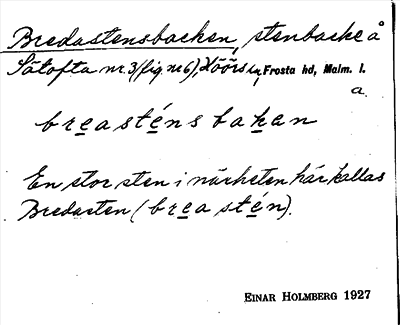 Bredastensbacken, stenbacke å
Sätofta nr. 3 (fig. nr 6), Höörs sn, Frosta hd, Malm. l.
a.
breasténs bakan
En stor sten i närheten här kallas
Bredasten (breastén).
EINAR HOLMBERG 1927